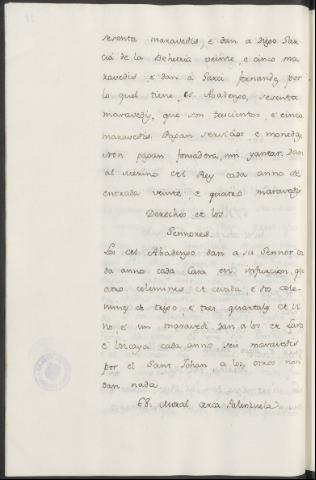 sesenta maravedis, e dan a Diego Gar
cia de la Behetria veinte, e cinco ma
ravedis e dan á Garci fernandz por
lo que tiene, es Abadengo, sesenta
maravedis, que son trecientos, e cinco
maravedis. Pagan servicios e moneda,
non pagan fonsadera, nin yantar. Dan
al merino del Rey cada anno de
entrada veinte, e quatro maravedis
Derechos de los
Sennores.
Los del Abadengo dan a su Sennor ca
da anno cada Casa en infurcion, qu
atro celemines de cevada, e dos cele
mines de trigo, e tres quartales de vi
no, e un maravedi dan a los de Lara
e Vizcaya cada anno seis maravedis
por el Sant Johan, a los otros non
dan nada.
68. Moral cerca Palenzuela